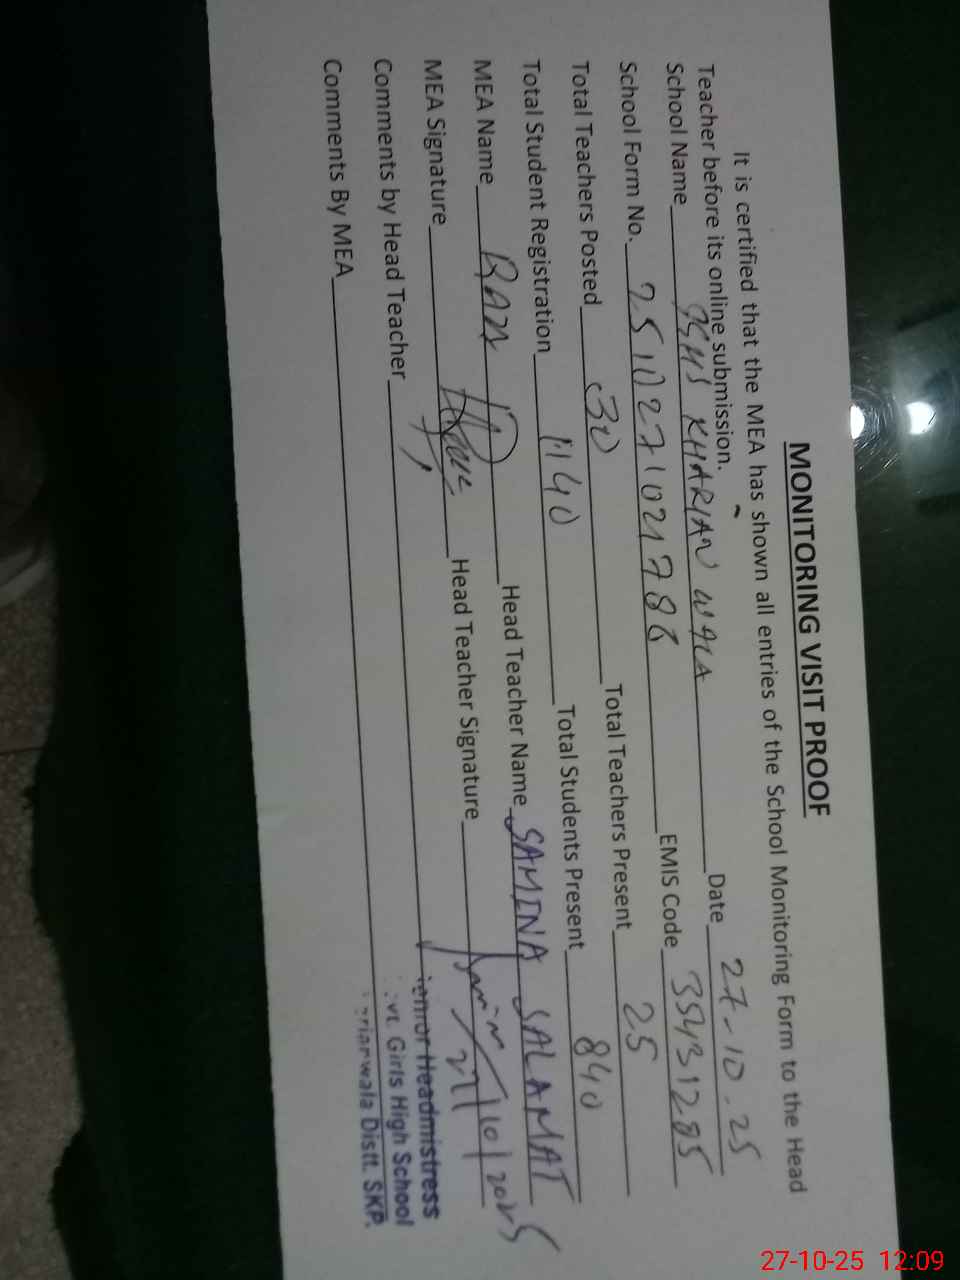 MONITORING VISIT PROOF
It is certified that the MEA has shown all entries of the School Monitoring Form to the Head
Teacher before its online submission.
School Name GGHS KHARIAN WALA Date 27-10-25
School Form No. 2510271021786 EMIS Code 35431285
Total Teachers Posted 30 Total Teachers Present 25
Total Student Registration 1140 Total Students Present 840
MEA Name Head Teacher Name SAMINA SALAMAT
MEA Signature Head Teacher Signature 27/10/2025
Comments by Head Teacher
Comments By MEA
Headmistress
Girls High School
Distt. SKP.
27-10-25 12:09